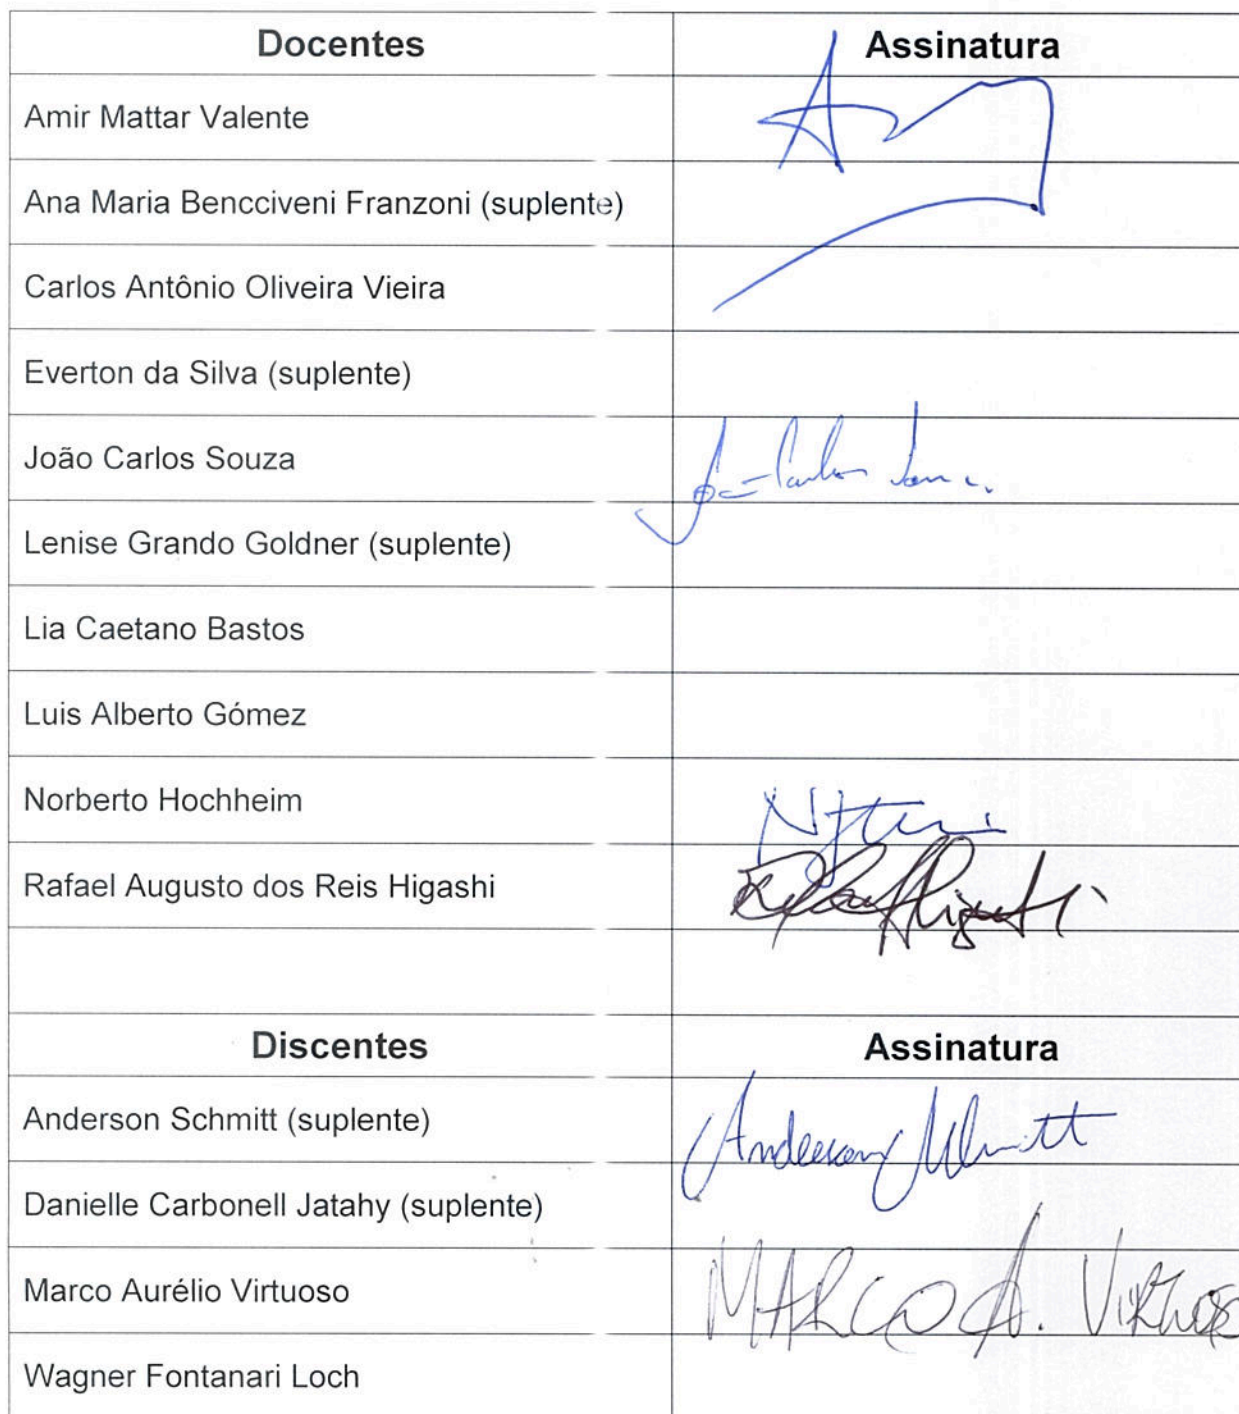 Docentes Assinatura
Amir Mattar Valente
Ana Maria Bencciveni Franzoni (suplente)
Carlos Antônio Oliveira Vieira
Everton da Silva (suplente)
João Carlos Souza
Lenise Grando Goldner (suplente)
Lia Caetano Bastos
Luis Alberto Gómez
Norberto Hochheim
Rafael Augusto dos Reis Higashi
Discentes Assinatura
Anderson Schmitt (suplente) Anderson Schmitt
Danielle Carbonell Jatahy (suplente)
Marco Aurélio Virtuoso MARCO A. VIRTUOSO
Wagner Fontanari Loch